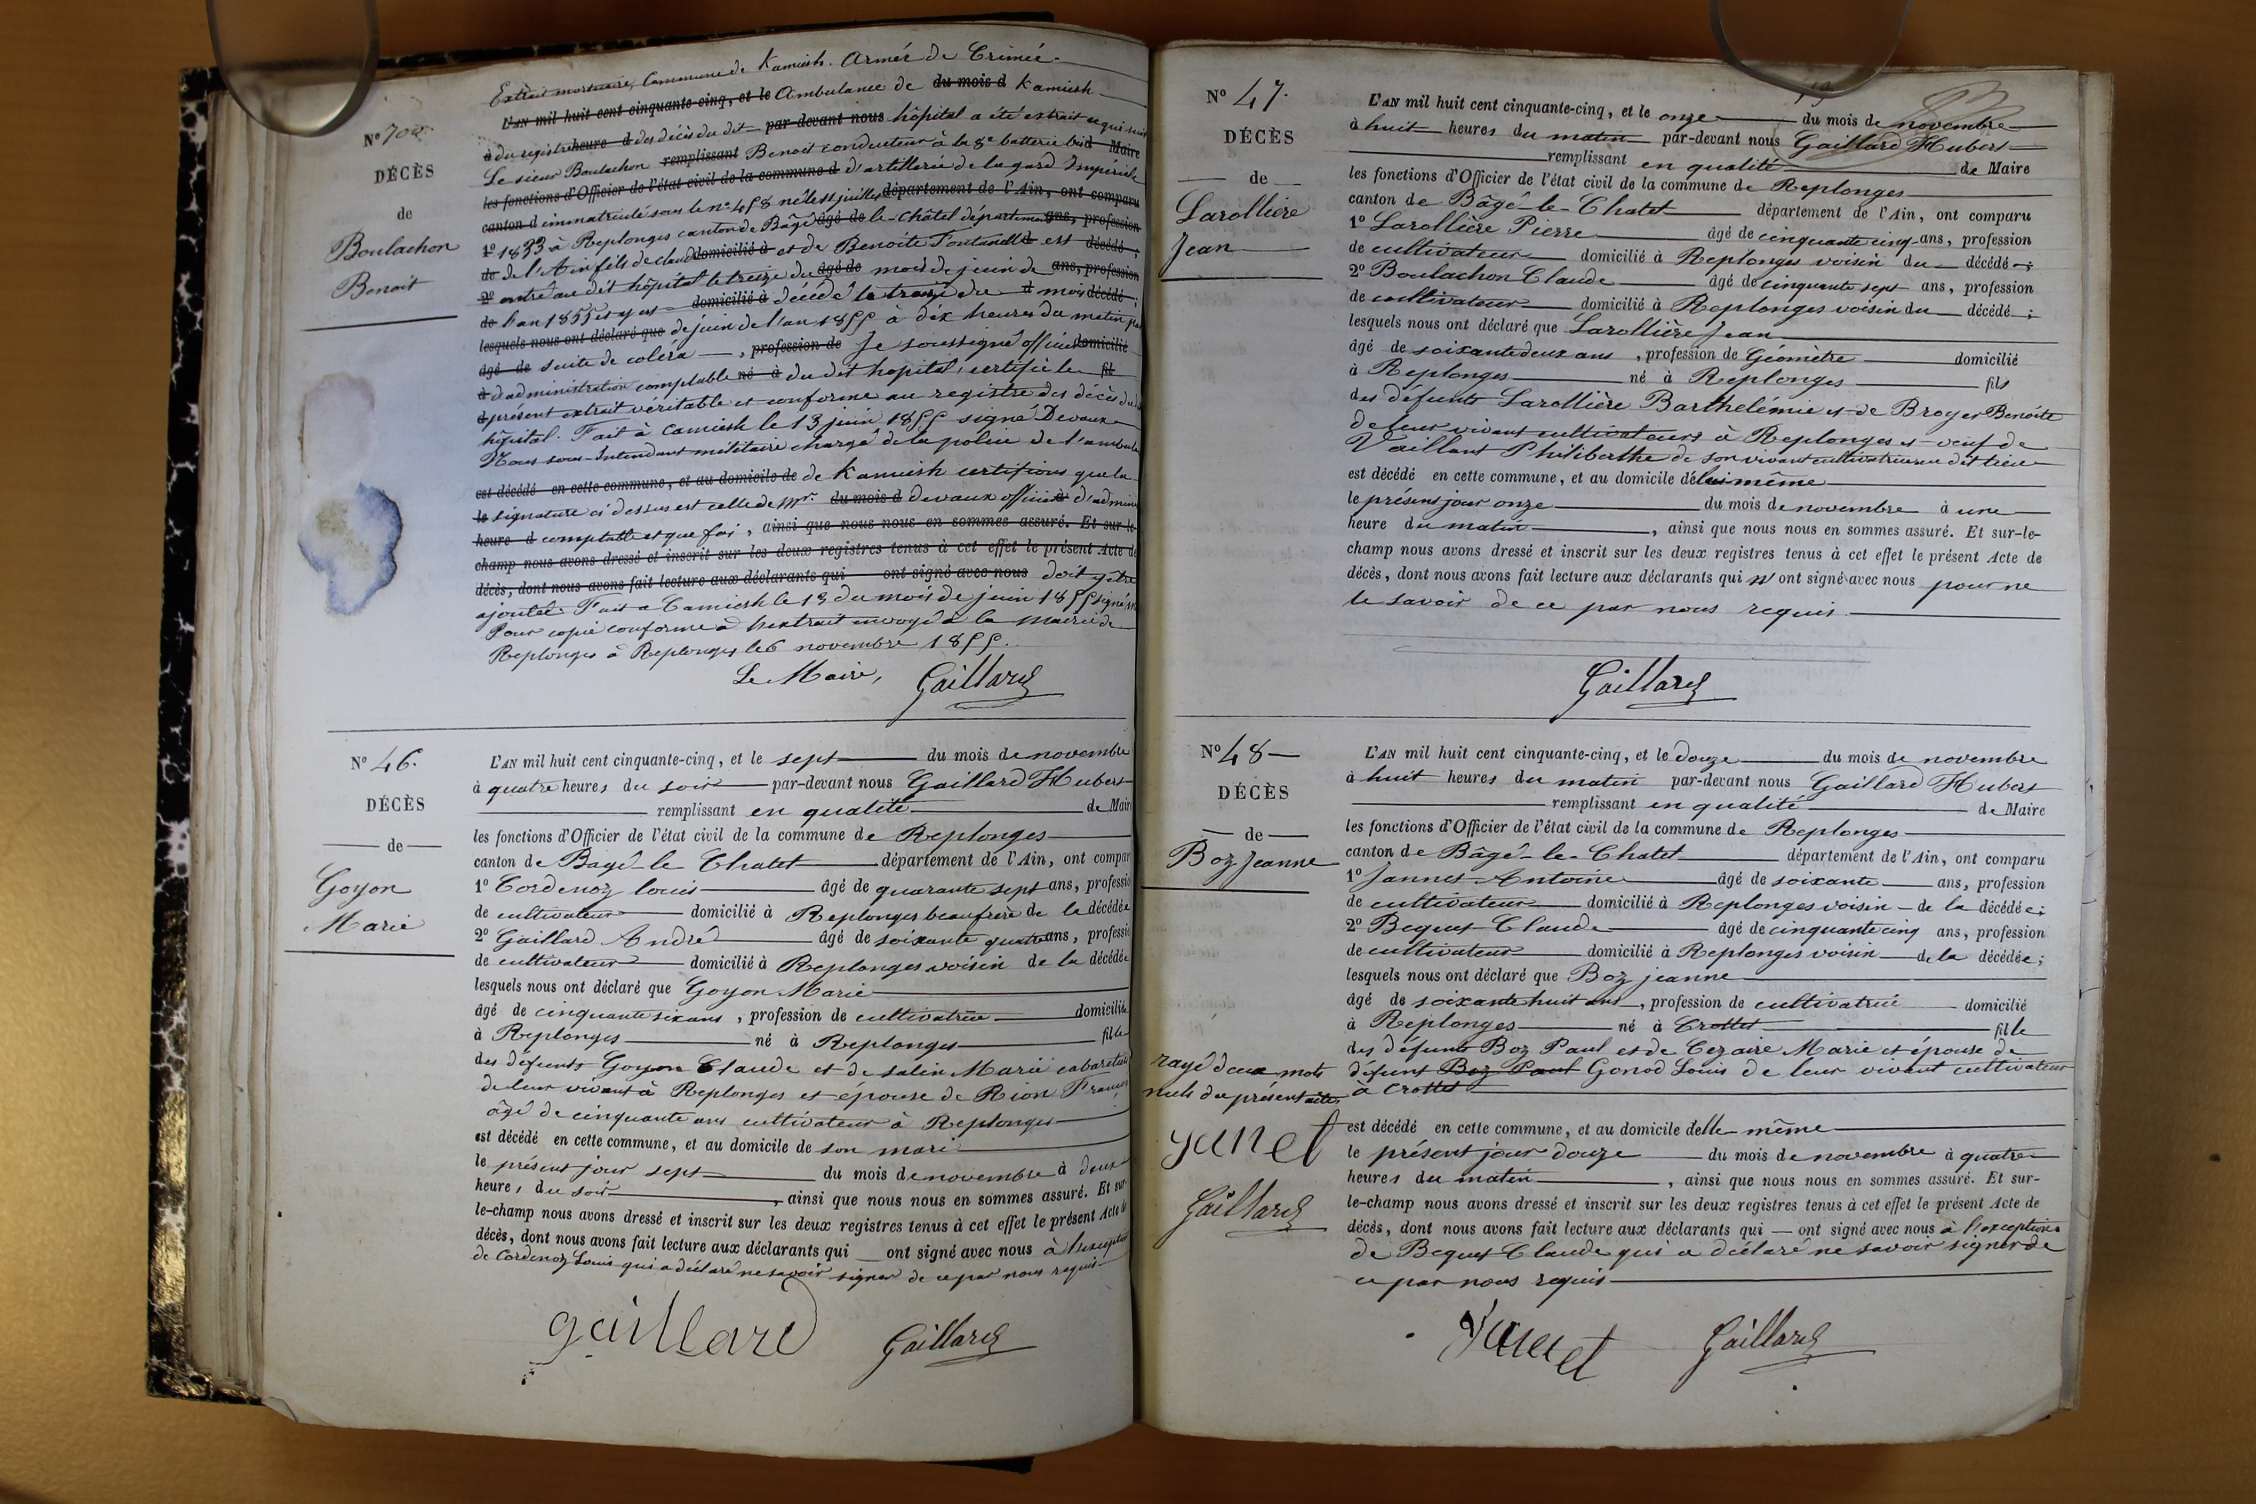 Extrait mortuaire, Commune de Kamiesh. Armée de Crimée.
N° 702
DÉCÈS
de
Boulachon
Benoit
L'AN mil huit cent cinquante-cinq, et le Ambulance de du mois d Kamiesh
à du registre heure d des décès du dit par-devant nous hôpital a été extrait ce qui suit
Le sieur Boulachon remplissant Benoit conducteur à la 8e batterie bis d Maire
les fonctions d'Officier de l'état civil de la commune d d'artillerie de la gard Impériale
canton d immatriculé sous le n° 458 né le juillet département de l'Ain, ont comparu
1° 1833 à Replonges canton de Bâgé âgé de le-Châtel département ans, profession
de de l'Ain fils de claude domicilié à et de Benoite Fontenelle est décédé ;
2° entré au dit hôpital le treize du âgé de mois de juin de ans, profession
de l'an 1855 et y est domicilié à décédé le treize du d mois décédé ;
lesquels nous ont déclaré que de juin de l'an 1855 à dix heures du matin par
âgé de suite de coléra , profession de Je soussigné officier domicilié
à d'administration comptable né à du dit hopital, certifie le fil
d présent extrait véritable et conforme au registre des décès du dit
hôpital. Fait à Camiesh le 13 juin 1855 signé Devaux
Nous sous-Intendant militaire chargé de la police de l'ambula
est décédé en cette commune, et au domicile de de Kamiesh certifions que la
le signature ci dessus est celle de Mr. du mois d devaux officier à d'admini
heure d comptable et que foi , ainsi que nous nous en sommes assuré. Et sur-le-
champ nous avons dressé et inscrit sur les deux registres tenus à cet effet le présent Acte de
décès, dont nous avons fait lecture aux déclarants qui ont signé avec nous doit y être
ajoutée. Fait a Camiesh le 13 du mois de juin 1855 signé
Pour copie conforme à l'extrait envoyé à la mairie de
Replonges à Replonges le 6 novembre 1855.
Le Maire, Gaillard
N° 46.
DÉCÈS
de
Goyon
Marie
L'AN mil huit cent cinquante-cinq, et le sept du mois de novembre
à quatre heures du soir par-devant nous Gaillard Hubert
remplissant en qualité de Mair
les fonctions d'Officier de l'état civil de la commune de Replonges
canton de Bagé-le Chatel département de l'Ain, ont compar
1° Cordenoz louis âgé de quarante sept ans, professio
de cultivateur domicilié à Replonges beaufrère de la décédée
2° Gaillard André âgé de soixante quatre ans, professio
de cultivateur domicilié à Replonges voisin de la décédée
lesquels nous ont déclaré que Goyon Marie
âgé de cinquante six ans , profession de cultivatrice domiciliée
à Replonges né à Replonges fille
des défunts Goyon Claude et de Salin Marie cabaretier
de leur vivant à Replonges et épouse de Rion François
âgé de cinquante ans cultivateur à Replonges
est décédé en cette commune, et au domicile de son mari
le présent jour sept du mois de novembre à deux
heures du soir , ainsi que nous nous en sommes assuré. Et sur-
le-champ nous avons dressé et inscrit sur les deux registres tenus à cet effet le présent Acte de
décès, dont nous avons fait lecture aux déclarants qui ont signé avec nous à l'exception
de Cordenoz Louis qui a déclaré ne savoir signer de ce par nous requis
gaillard Gaillard
N° 47.
DÉCÈS
de
Larollière
Jean
L'AN mil huit cent cinquante-cinq, et le onze du mois de novembre
à huit heures du matin par-devant nous Gaillard Hubert
remplissant en qualité de Maire
les fonctions d'Officier de l'état civil de la commune de Replonges
canton de Bâgé-le-Chatel département de l'Ain, ont comparu
1° Larollière Pierre âgé de cinquante cinq ans, profession
de cultivateur domicilié à Replonges voisin du décédé ;
2° Boulachon Claude âgé de cinquante sept ans, profession
de cultivateur domicilié à Replonges voisin du décédé ;
lesquels nous ont déclaré que Larollière Jean
âgé de soixante deux ans , profession de Géomètre domicilié
à Replonges né à Replonges fils
des défunts Larollière Barthelémie et de Broyer Benoite
de leur vivant cultivateurs à Replonges et veuf de
Vaillant Philiberthe de son vivant cultivatrice au dit lieu
est décédé en cette commune, et au domicile de lui même
le présent jour onze du mois de novembre à une
heure du matin , ainsi que nous nous en sommes assuré. Et sur-le-
champ nous avons dressé et inscrit sur les deux registres tenus à cet effet le présent Acte de
décès, dont nous avons fait lecture aux déclarants qui n'ont signé avec nous pour ne
le savoir de ce par nous requis.
Gaillard
N° 48
DÉCÈS
de
Boz Jeanne
L'AN mil huit cent cinquante-cinq, et le douze du mois de novembre
à huit heures du matin par-devant nous Gaillard Hubert
remplissant en qualité de Maire
les fonctions d'Officier de l'état civil de la commune de Replonges
canton de Bâgé-le-Chatel département de l'Ain, ont comparu
1° Jannet Antoine âgé de soixante ans, profession
de cultivateur domicilié à Replonges voisin de la décédée ;
2° Bequet Claude âgé de cinquante cinq ans, profession
de cultivateur domicilié à Replonges voisin de la décédée ;
lesquels nous ont déclaré que Boz jeanne
âgé de soixante huit ans , profession de cultivatrice domicilié
à Replonges né à Crottet fille
des défunts Boz Paul et de Cezaire Marie et épouse de
défunt Boz Paul Gonod Louis de leur vivant cultivateur
à Crottet
rayé deux mots
nuls du présent acte
yanet
Gaillard
est décédé en cette commune, et au domicile d'elle même
le présent jour douze du mois de novembre à quatre
heures du matin , ainsi que nous nous en sommes assuré. Et sur-
le-champ nous avons dressé et inscrit sur les deux registres tenus à cet effet le présent Acte de
décès, dont nous avons fait lecture aux déclarants qui ont signé avec nous à l'exception
de Bequet Claude qui a déclaré ne savoir signer de
ce par nous requis
Gaillard